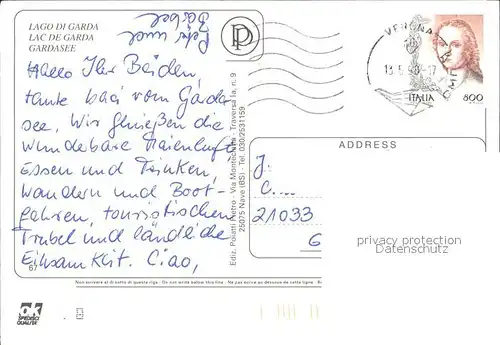 LAGO DI GARDA
LAC DE GARDA
GARDASEE
Hallo Ihr Beiden,
tante baci vom Garda-
see. Wir genießen die
wunderbare Maienluft
Essen und Trinken,
Wandern und Boot-
fahren, touristischen
Trubel und ländliche
Einsamkeit. Ciao,
Peter und
Bärbel
67
Ediz. Poiatti Pietro - Via Monteclara - Traversa Ia, n. 9
25075 Nave (BS) - Tel. 030/2531159
P
VERONA
13.5.98-17
ITALIA 800
ADDRESS
J.
C....
21033
G
privacy protection
Datenschutz
Non scrivere al di sotto di questa riga - Do not write below this line - Ne pas écrire au dessous de cette ligne
ok
SPEDISCI
QUALITÀ